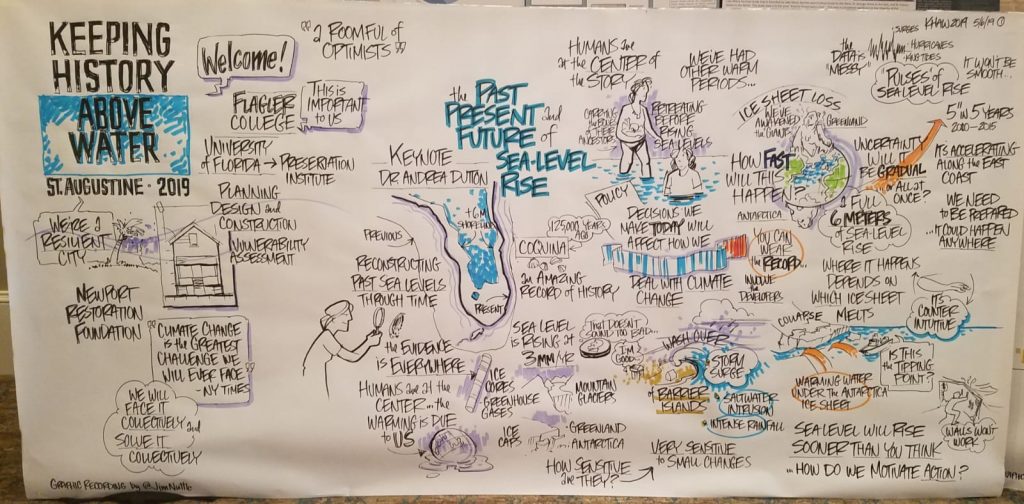 KEEPING
HISTORY
ABOVE
WATER
ST. AUGUSTINE • 2019
WE'RE a
RESILIENT
CITY
NEWPORT
RESTORATION
FOUNDATION
Welcome!
"a ROOMFUL of
OPTIMISTS"
FLAGLER
COLLEGE
THIS is
IMPORTANT
to US
UNIVERSITY
of FLORIDA → PRESERVATION
INSTITUTE
PLANNING
DESIGN and
CONSTRUCTION
VULNERABILITY
ASSESSMENT
"CLIMATE CHANGE
is the GREATEST
CHALLENGE WE
WILL EVER FACE"
-NY TIMES
WE WILL
FACE IT
COLLECTIVELY and
SOLVE IT
COLLECTIVELY
GRAPHIC RECORDING by @JimNuttle
KEYNOTE
DR ANDREA DUTTON
the PAST
PRESENT and
FUTURE of
SEA-LEVEL
RISE
PREVIOUS
+6M
SHORELINE
PRESENT
RECONSTRUCTING
PAST SEA LEVELS
THROUGH TIME
the EVIDENCE IS
EVERYWHERE
HUMANS are at the
CENTER... the
WARMING is DUE
to US
ICE
CORES
GREENHOUSE
GASES
ICE
CAPS
125000 YEARS
AGO
COQUINA
an AMAZING
RECORD of HISTORY
SEA LEVEL
is RISING at
3MM/YR
THAT DOESN'T
SOUND TOO BAD...
I'M a
GOOD
MOUNTAIN
GLACIERS
GREENLAND
ANTARCTICA
HOW SENSITIVE
are THEY?
VERY SENSITIVE
to SMALL CHANGES
HUMANS are
at the CENTER of
the STORY
CARRYING
the
ANCESTORS
RETREATING
BEFORE
RISING
SEA LEVELS
WE'VE HAD
OTHER WARM
PERIODS...
POLICY
DECISIONS WE
MAKE TODAY WILL
AFFECT HOW WE
DEAL WITH CLIMATE
CHANGE
HOW FAST
WILL THIS
HAPPEN?
ICE SHEET LOSS
WE'VE
AWAKENED
the GIANTS
GREENLAND
ANTARCTICA
YOU CAN
WEAR
the RECORD...
INVOLVE
the DEVELOPERS
WASH OVER
of BARRIER
ISLANDS
STORM
SURGE
• SALTWATER
INTRUSION
• INTENSE RAINFALL
the
DATA is
"MESSY"
SURGES
HURRICANES
KING TIDES
KHAW2019 5/6/19 ①
PULSES of
SEA LEVEL
RISE
IT WON'T BE
SMOOTH...
UNCERTAINTY
WILL it
BE GRADUAL
or ALL at
ONCE?
5" IN 5 YEARS
2010-2015
IT'S ACCELERATING
ALONG the EAST
COAST
WE NEED
to BE PREPARED
...IT COULD HAPPEN
ANYWHERE
a FULL
6 METERS
of SEA LEVEL
RISE
WHERE IT HAPPENS
DEPENDS on
WHICH ICE SHEET
MELTS
IT'S
COUNTER
INTUITIVE
COLLAPSE
WARMING WATER
UNDER the ANTARCTICA
ICE SHEET
IS THIS
the TIPPING
POINT?
WALLS WON'T
WORK
SEA LEVEL WILL RISE
SOONER THAN YOU THINK
...HOW DO WE MOTIVATE ACTION?